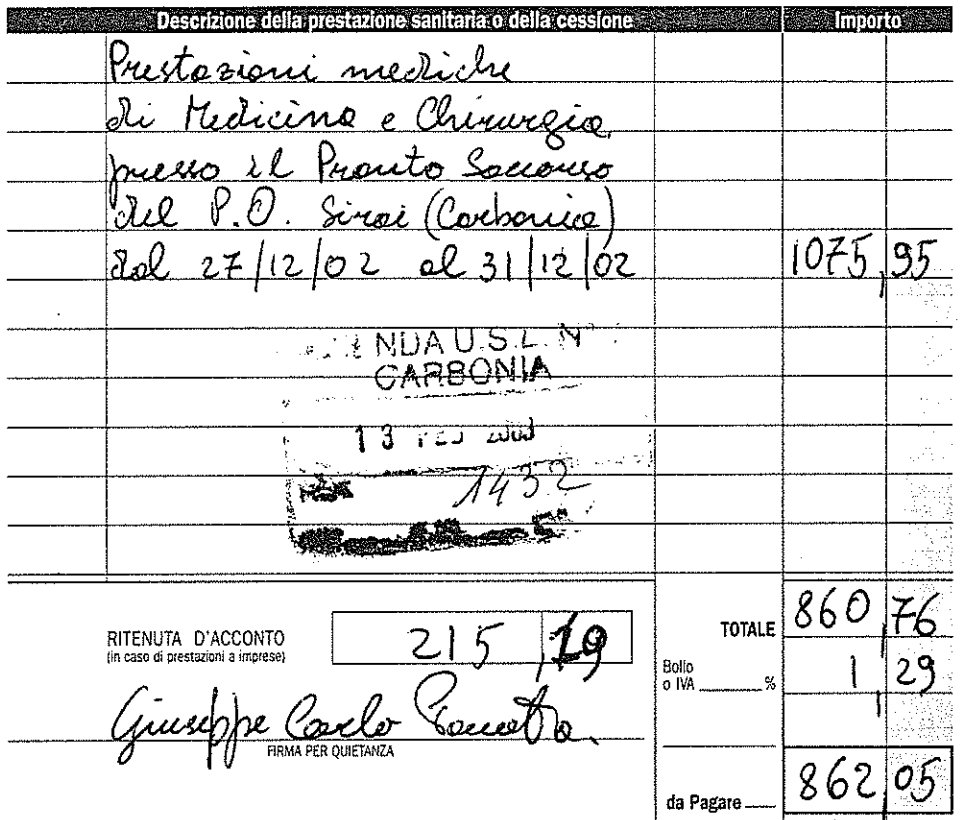 Descrizione della prestazione sanitaria o della cessione Importo
Prestazioni mediche
di Medicina e Chirurgia
presso il Pronto Soccorso
del P.O. Sirai (Carbonia)
dal 27/12/02 al 31/12/02 1075,95
NDA U.S.L. N°
CARBONIA
13
1432
RITENUTA D'ACCONTO 215,19
(in caso di prestazioni a imprese)
TOTALE 860,76
Bollo 1,29
o IVA %
Giuseppe Carlo
FIRMA PER QUIETANZA
da Pagare 862,05